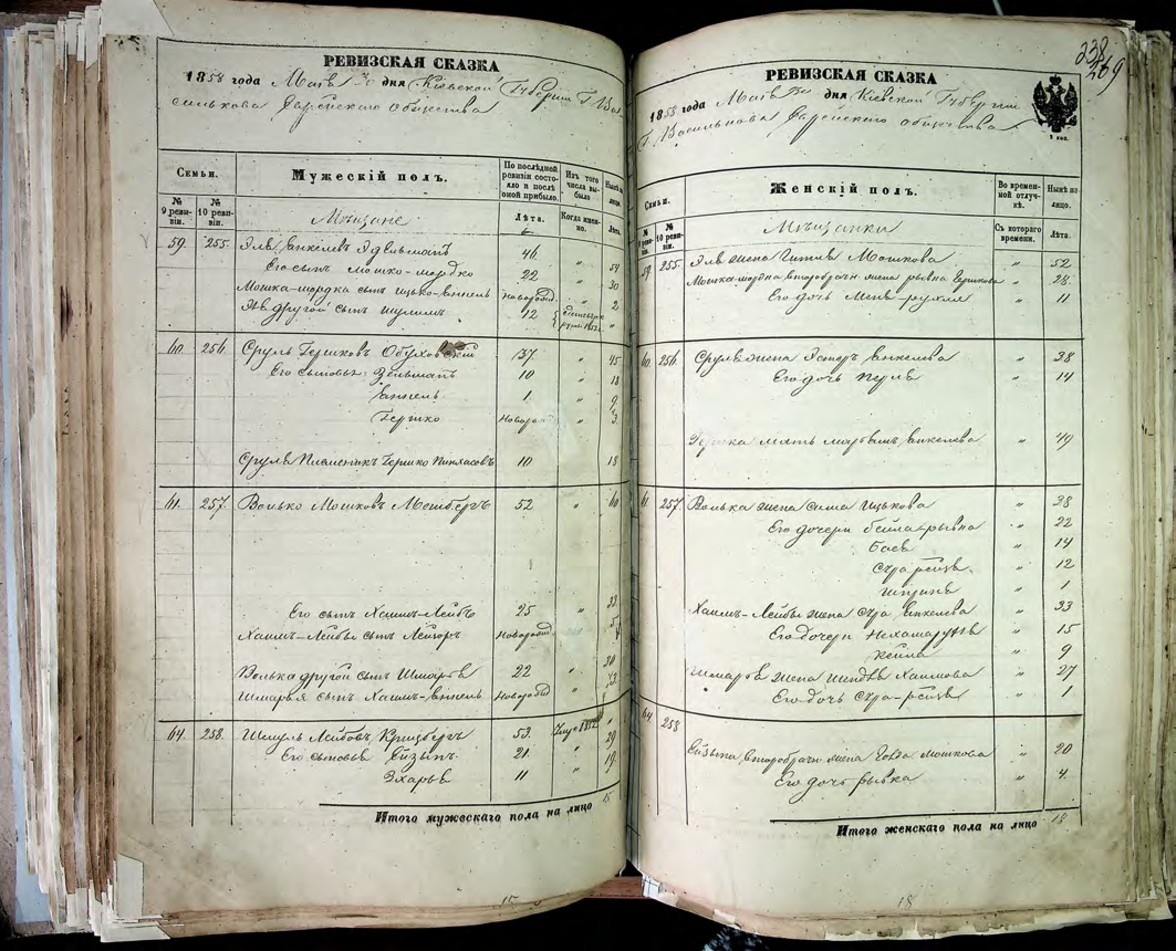 РЕВИЗСКАЯ СКАЗКА
1858 года Маія дня Кіевской Губерніи Г. Ва
силькова Еврейского Общества
Семьи.
Мужескій полъ.
По послѣдней ревизіи состояло и послѣ оной прибыло.
Изъ того числа выбыло
Нынѣ на лицо.
№ 9 ревизіи.
№ 10 ревизіи.
Мѣщане
Лѣта.
Когда именно.
Лѣта.
59. 255. Эля Янкелевъ Эдельманъ 46. " 54
Его сынъ Мошко-Мордко 22 " 30
Мошка-Мордка сынъ Ицько-Янкель Новорожд. " 2
Эля другой сынъ Шулимъ 12
60. 256. Сруль Гершковъ Обуховскій 37. " 45
Его сыновья: Зельманъ 10 " 18
Янкель 1. " 9
Гершко Новорожд " 3.
Сруля племенникъ Гершко Пинхасовъ 10 18
61. 257. Волько Мошковъ 52 " 60
Его сынъ Хаимъ-Лейба 25 " 33
Хаимъ-Лейбы сынъ Новорожд
Волька другой сынъ Шмарья 22 " 30
Шмарья сынъ Хаимъ-Янкель Новорожд "
64. 258. Шмуль Лейбовъ 53. "
Его сыновья 21. " 29
Эхарье 11 " 19.
Итого мужескаго пола на лицо 15
15
238
269
РЕВИЗСКАЯ СКАЗКА
1858 года Маія дня Кіевской Губерніи
Г. Василькова Еврейского общества
Семьи.
Женскій полъ.
Во временной отлучкѣ.
Нынѣ на лицо.
№ 9 ревизіи.
№ 10 ревизіи.
Мѣщанки
Съ котораго времени.
Лѣта.
59. 255. Эля жена Гитля Мошкова " 52
Мошка-Мордка второбрачн. жена Рывка Гершкова " 28
Его дочь Рухля " 11
60. 256. Сруля жена Эстеръ Янкелева " 38
Его дочь Перля " 14
Гершка мать Янкелева " 49
61. 257. Волька жена Сима Ицькова " 38
Его дочери Бейла-Рывка " 22
Бася " 14
Сура-Рейзя " 12
" 1
Хаимъ-Лейбы жена Сура Янкелева " 33
Его дочери " 15
Кейла " 9
Шмарья жена Шейндля Хаимова " 27
Его дочь Сура-Рейзя " 1
64. 258
второбрачн. жена Мошкова " 20
Его дочь Рывка " 4.
Итого женскаго пола на лицо 18
18